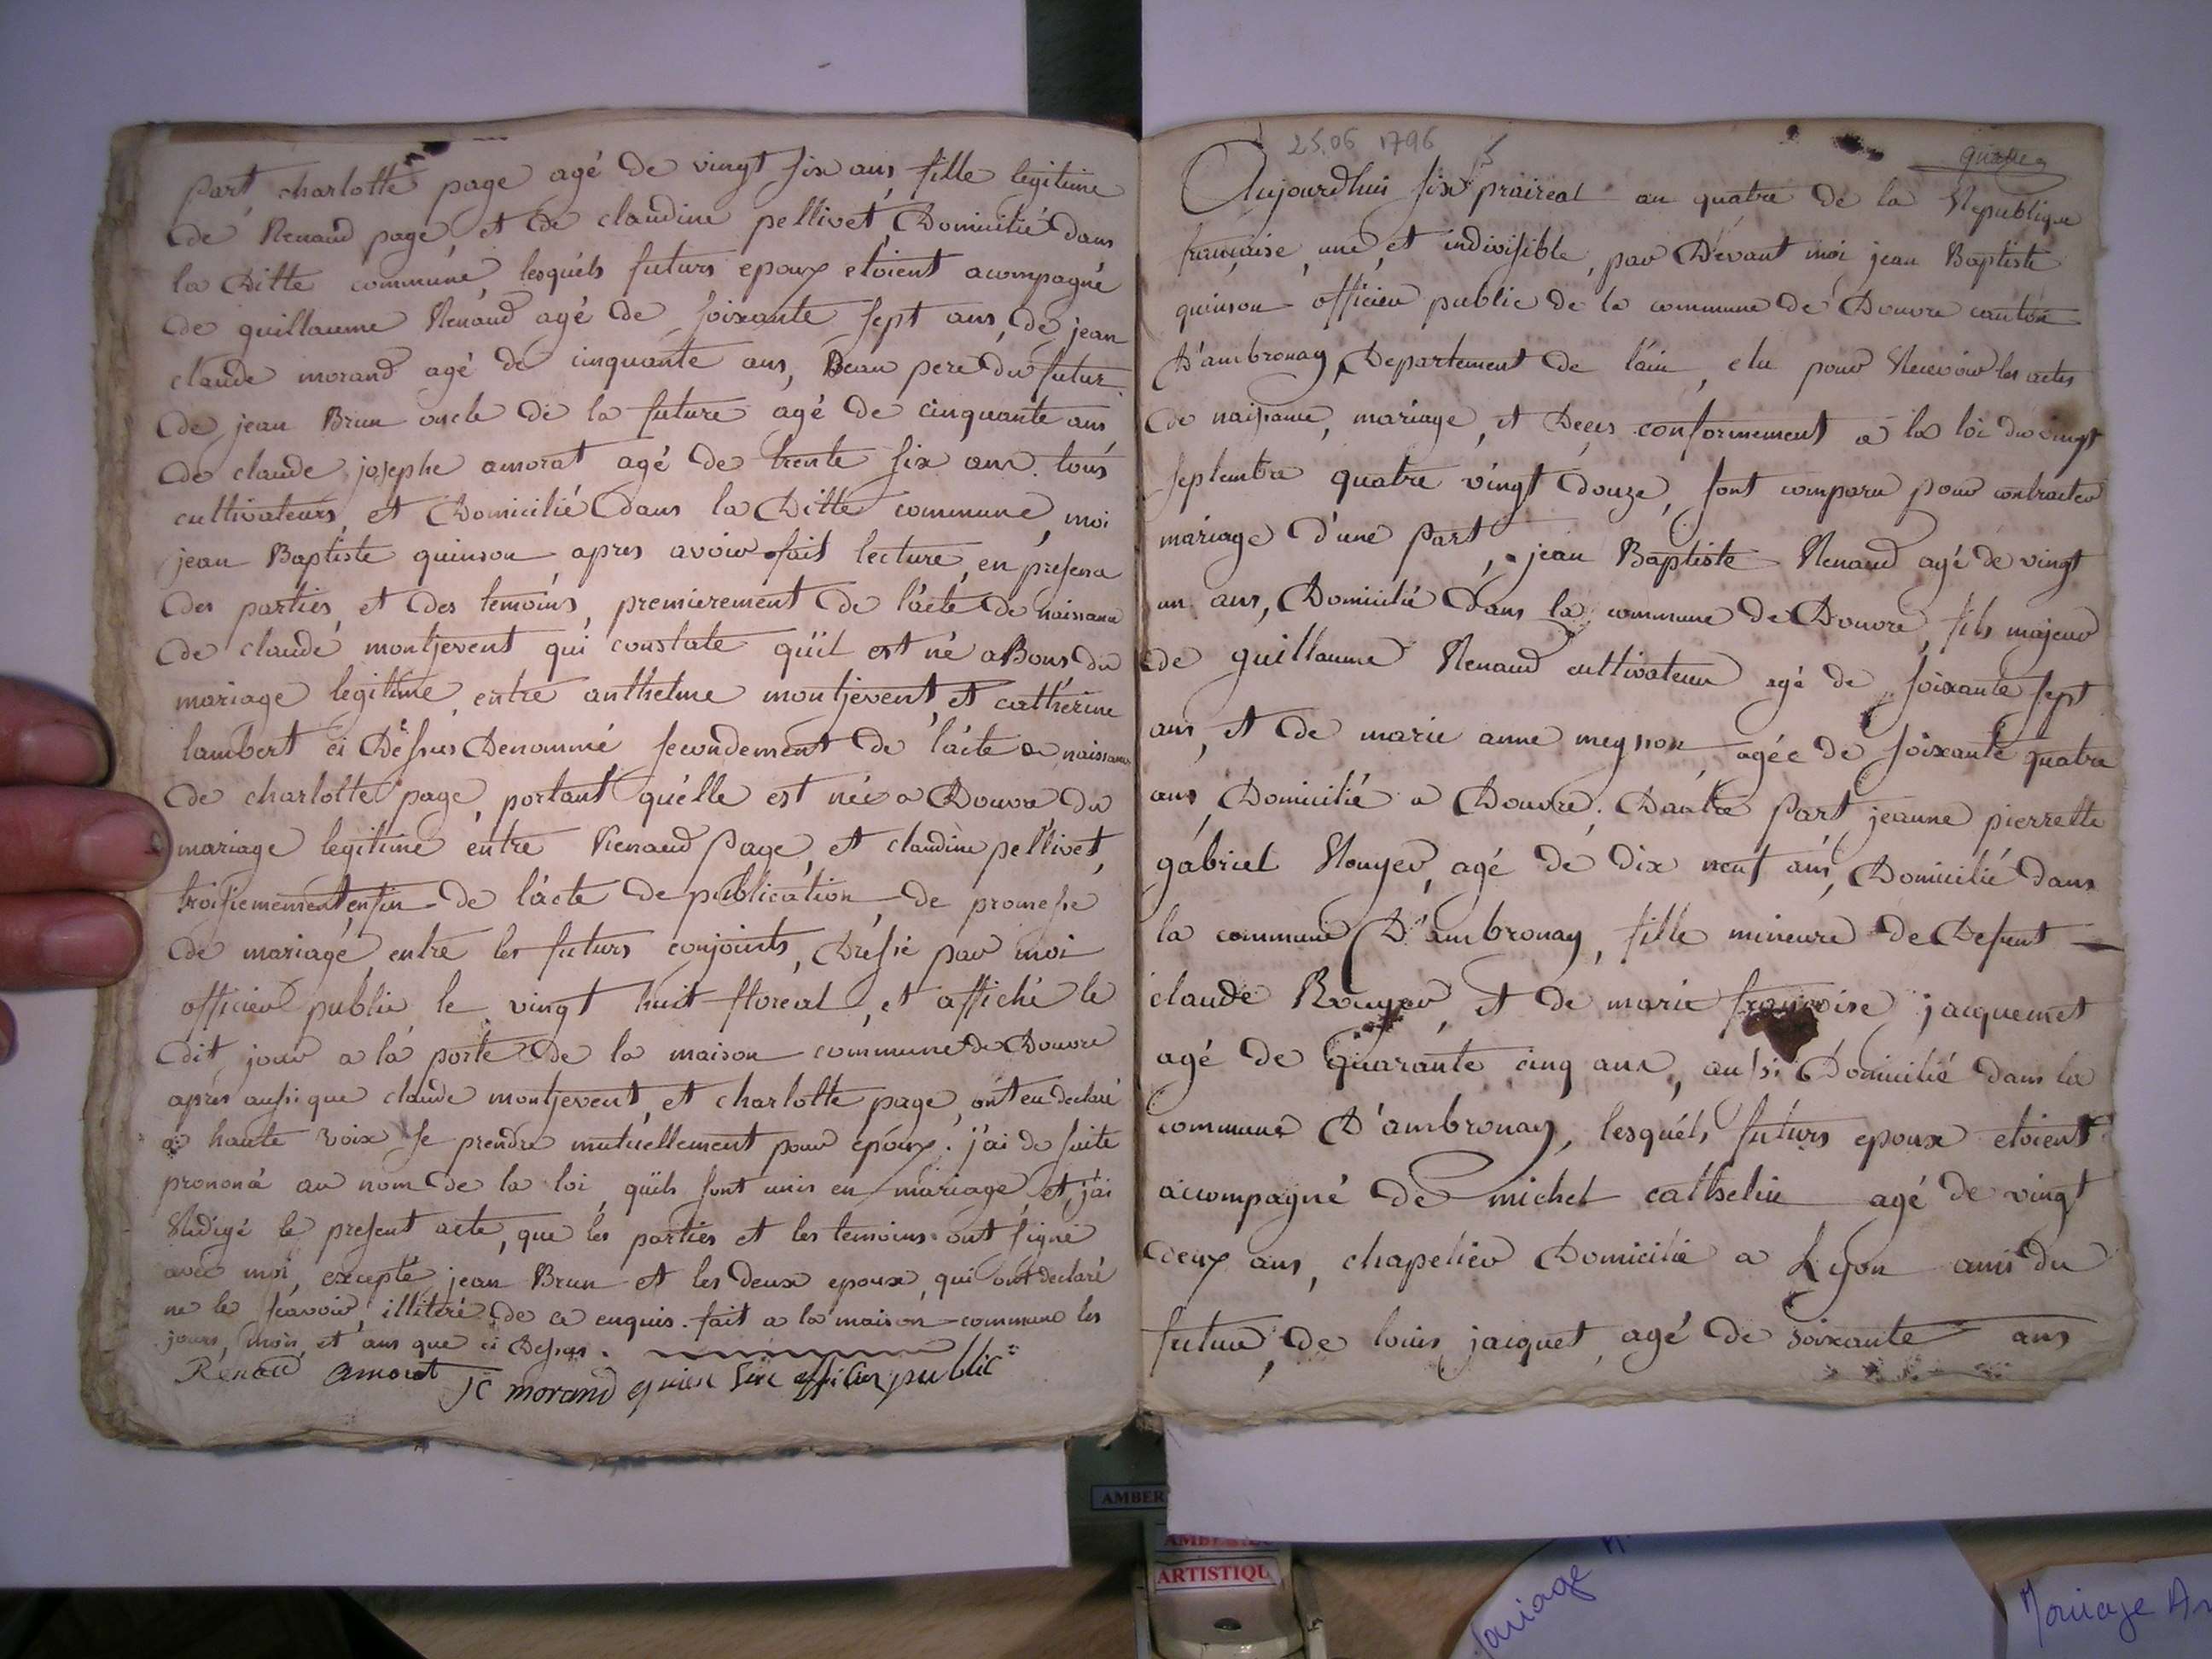 part, charlotte page agé de vingt six ans, fille legitime
de Renaud page, et de claudine pellivet, Domicilié dans
la ditte commune, lesquéls futurs epoux etoient acompagné
de guillaume Renaud agé de soixante sept ans, de jean
claude morand agé de cinquante ans, Beau pere du futur,
de jean Brun oncle de la future agé de cinquante ans
de claude josephe amorat agé de trente six ans. tous
cultivateurs, et Domicilié dans la Ditte commune, moi
jean Baptiste quinson apres avoir fait lecture, en presence
des parties, et des temoins, premierement de l'acte de naissance
de claude montjevent qui constate qüil est né a Bons du
mariage legitime, entre anthelme montjevent, et catherine
lambert ci Dessus Denommé secondement de l'acte de naissance
de charlotte page, portant qu'élle est née a Douvre du
mariage legitime entre Renaud page, et claudine pellivet,
troisiemement enfin de l'acte de publication, de promesse
de mariage, entre les futurs conjoints, Dressé par moi
officier public le vingt huit floreal, et affiché le
dit jour a la porte de la maison commune de Douvre
après aussi que claude montjevent, et charlotte page, ont eu declaré
a haute voix se prendre mutuellement pour époux. j'ai de suite
prononcé au nom de la loi, qu'ils sont unis en mariage, et j'ai
Redigé le present acte, que les parties et les temoins ont signé
avec moi, excepté jean Brun et les deux epoux, qui ont declaré
ne le scavoir, illiteré de ce enquis. fait a la maison commune les
jours, mois, et ans que ci Dessus.
Rénaud amorat JC morand quinson officier public
25.06 1796
quatre
Aujourdhui six praireal an quatre de la Republique
française, une, et indivisible, par Dévant moi jean Baptiste
quinson officier public de la commune de Douvre canton
D'ambronay, Departement de l'ain, elu pour Recevoir les actes
de naissance, mariage, et Décès conformement a la loi du vingt
septembre quatre vingt douze, sont comparu pour contracter
mariage d'une part, jean Baptiste Renaud agé de vingt
un ans, Domicilié dans la commune de Douvre, fils majeur
de guillaume Renaud cultivateur agé de soixante sept
ans, et de marie anne meynon, agée de soixante quatre
ans, Domicilié a Douvre, Dautre part jeanne pierrette
gabriel Rouyer, agé de dix neuf ans, Domicilié dans
la commune D'ambronay, fille mineure de Defunt
claude Rouyer, et de marie françoise jacquemet
agé de Quarante cinq ans, aussi Domicilié dans la
commune D'ambronay, lesquéls futurs epoux etoient
accompagné de michel cathelin agé de vingt
deux ans, chapelier Domicilié a Lyon ami du
futur, de louis jacquet, agé de soixante ans
AMBER
ARTISTIQU
Mariage
Mariage